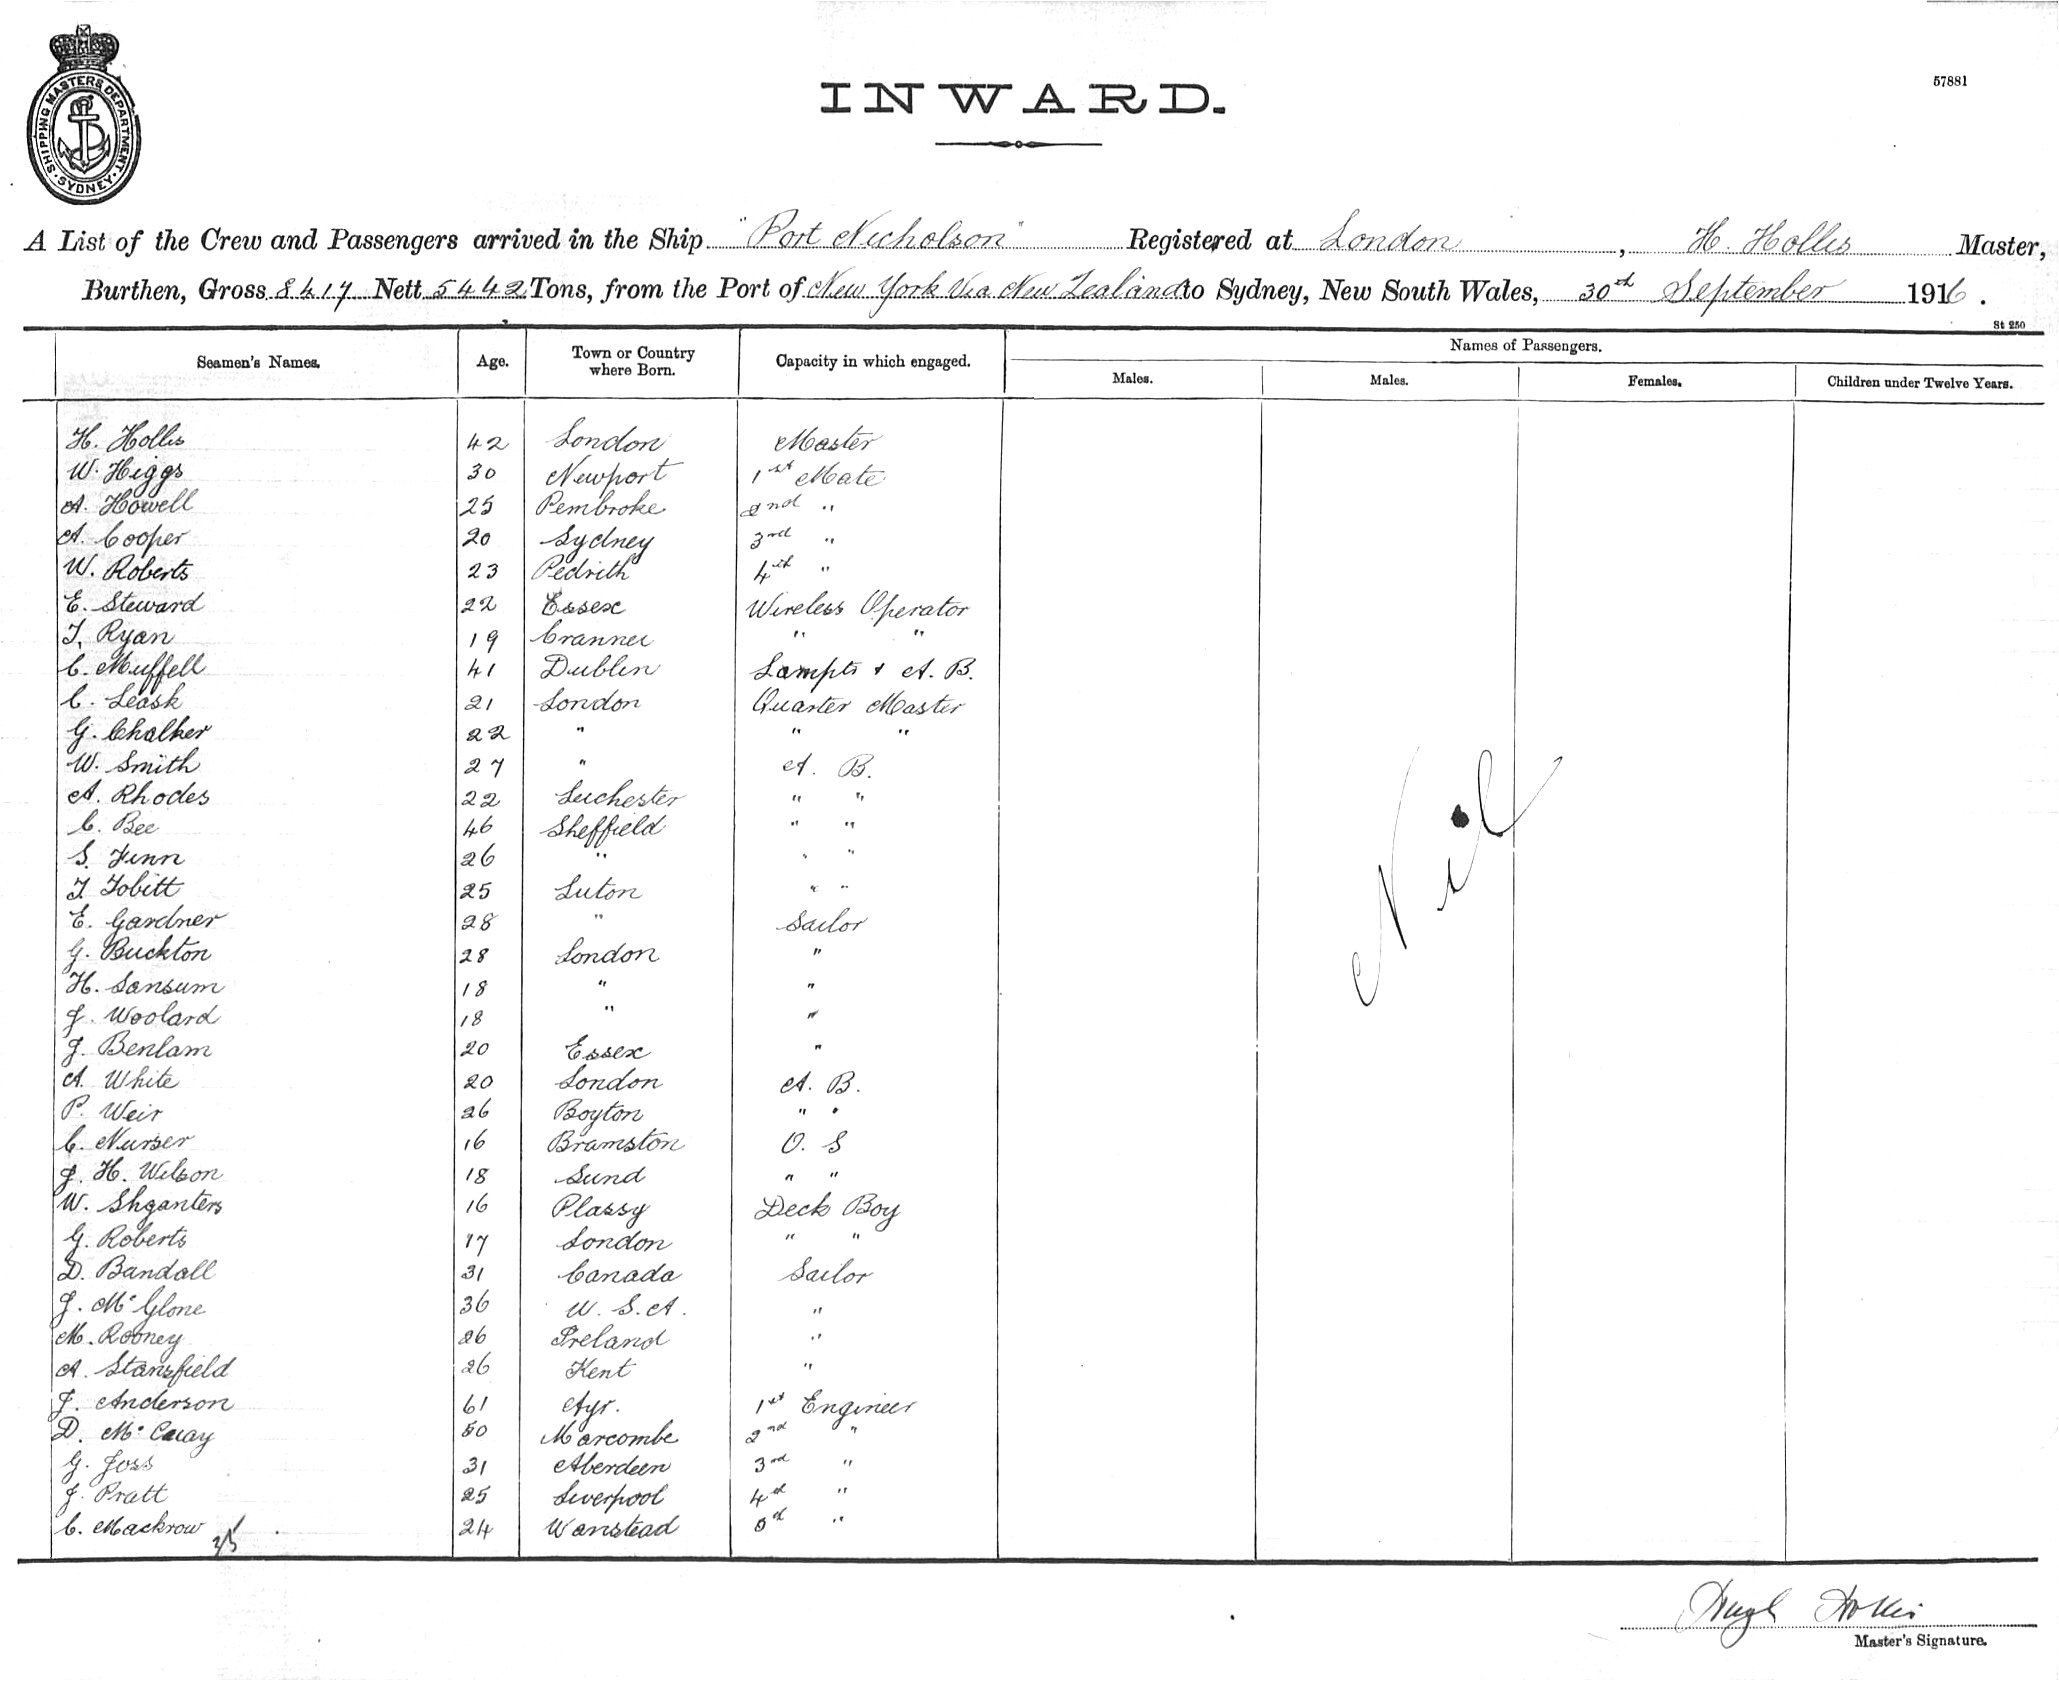 SHIPPING MASTERS DEPARTMENT · SYDNEY ·
57881
INWARD.
A List of the Crew and Passengers arrived in the Ship "Port Nicholson" Registered at London, H. Hollis Master,
Burthen, Gross 8417 Nett 5442 Tons, from the Port of New York Via New Zealand to Sydney, New South Wales, 30th September 1916.
St 250
Seamen's Names. Age. Town or Country where Born. Capacity in which engaged. Names of Passengers.
Males. Males. Females. Children under Twelve Years.
H. Hollis 42 London Master
W. Higgs 30 Newport 1st Mate
A. Howell 25 Pembroke 2nd "
A. Cooper 20 Sydney 3rd "
W. Roberts 23 Pedrith 4th "
E. Steward 22 Essex Wireless Operator
T. Ryan 19 " "
C. Muffell 41 Dublin Lampts & A. B.
C. Leask 21 London Quarter Master
G. Chalker 22 " " "
W. Smith 27 " A. B.
A. Rhodes 22 Luchester " "
C. Bee 46 Sheffield " "
S. Finn 26 " " "
T. Tobitt 25 Luton " "
E. Gardner 28 " Sailor
G. Buckton 28 London "
H. Sansum 18 " "
J. Woolard 18 " "
J. Benlam 20 Essex "
A. White 20 London A. B.
P. Weir 26 Boyton " "
C. Nurser 16 Bramston O. S
J. H. Wilson 18 Sund " "
W. Shganters 16 Plassy Deck Boy
G. Roberts 17 London " "
D. Bandall 31 Canada Sailor
J. McGlone 36 U. S. A. "
M. Rooney 26 Ireland "
A. Stansfield 26 Kent "
J. Anderson 61 Ayr. 1st Engineer
D. 50 Marcombe 2nd "
G. Joss 31 Aberdeen 3rd "
J. Pratt 25 Liverpool 4th "
C. Mackrow 24 Wanstead 5th "
35
Nil
Hugh Hollis
Master's Signature.